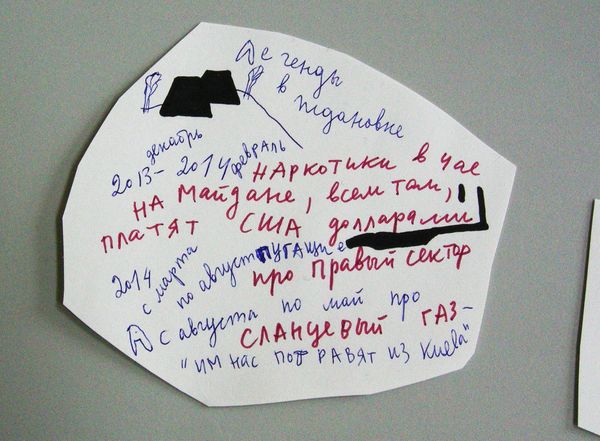 Легенды
в
Ждановке
декабрь
2013-2014 февраль
наркотики в чае
на Майдане, всем там,
платят США долларами
2014
с марта
по август пугащие
про Правый сектор
с августа по май про
сланцевый газ-
"им нас потравят из Киева"